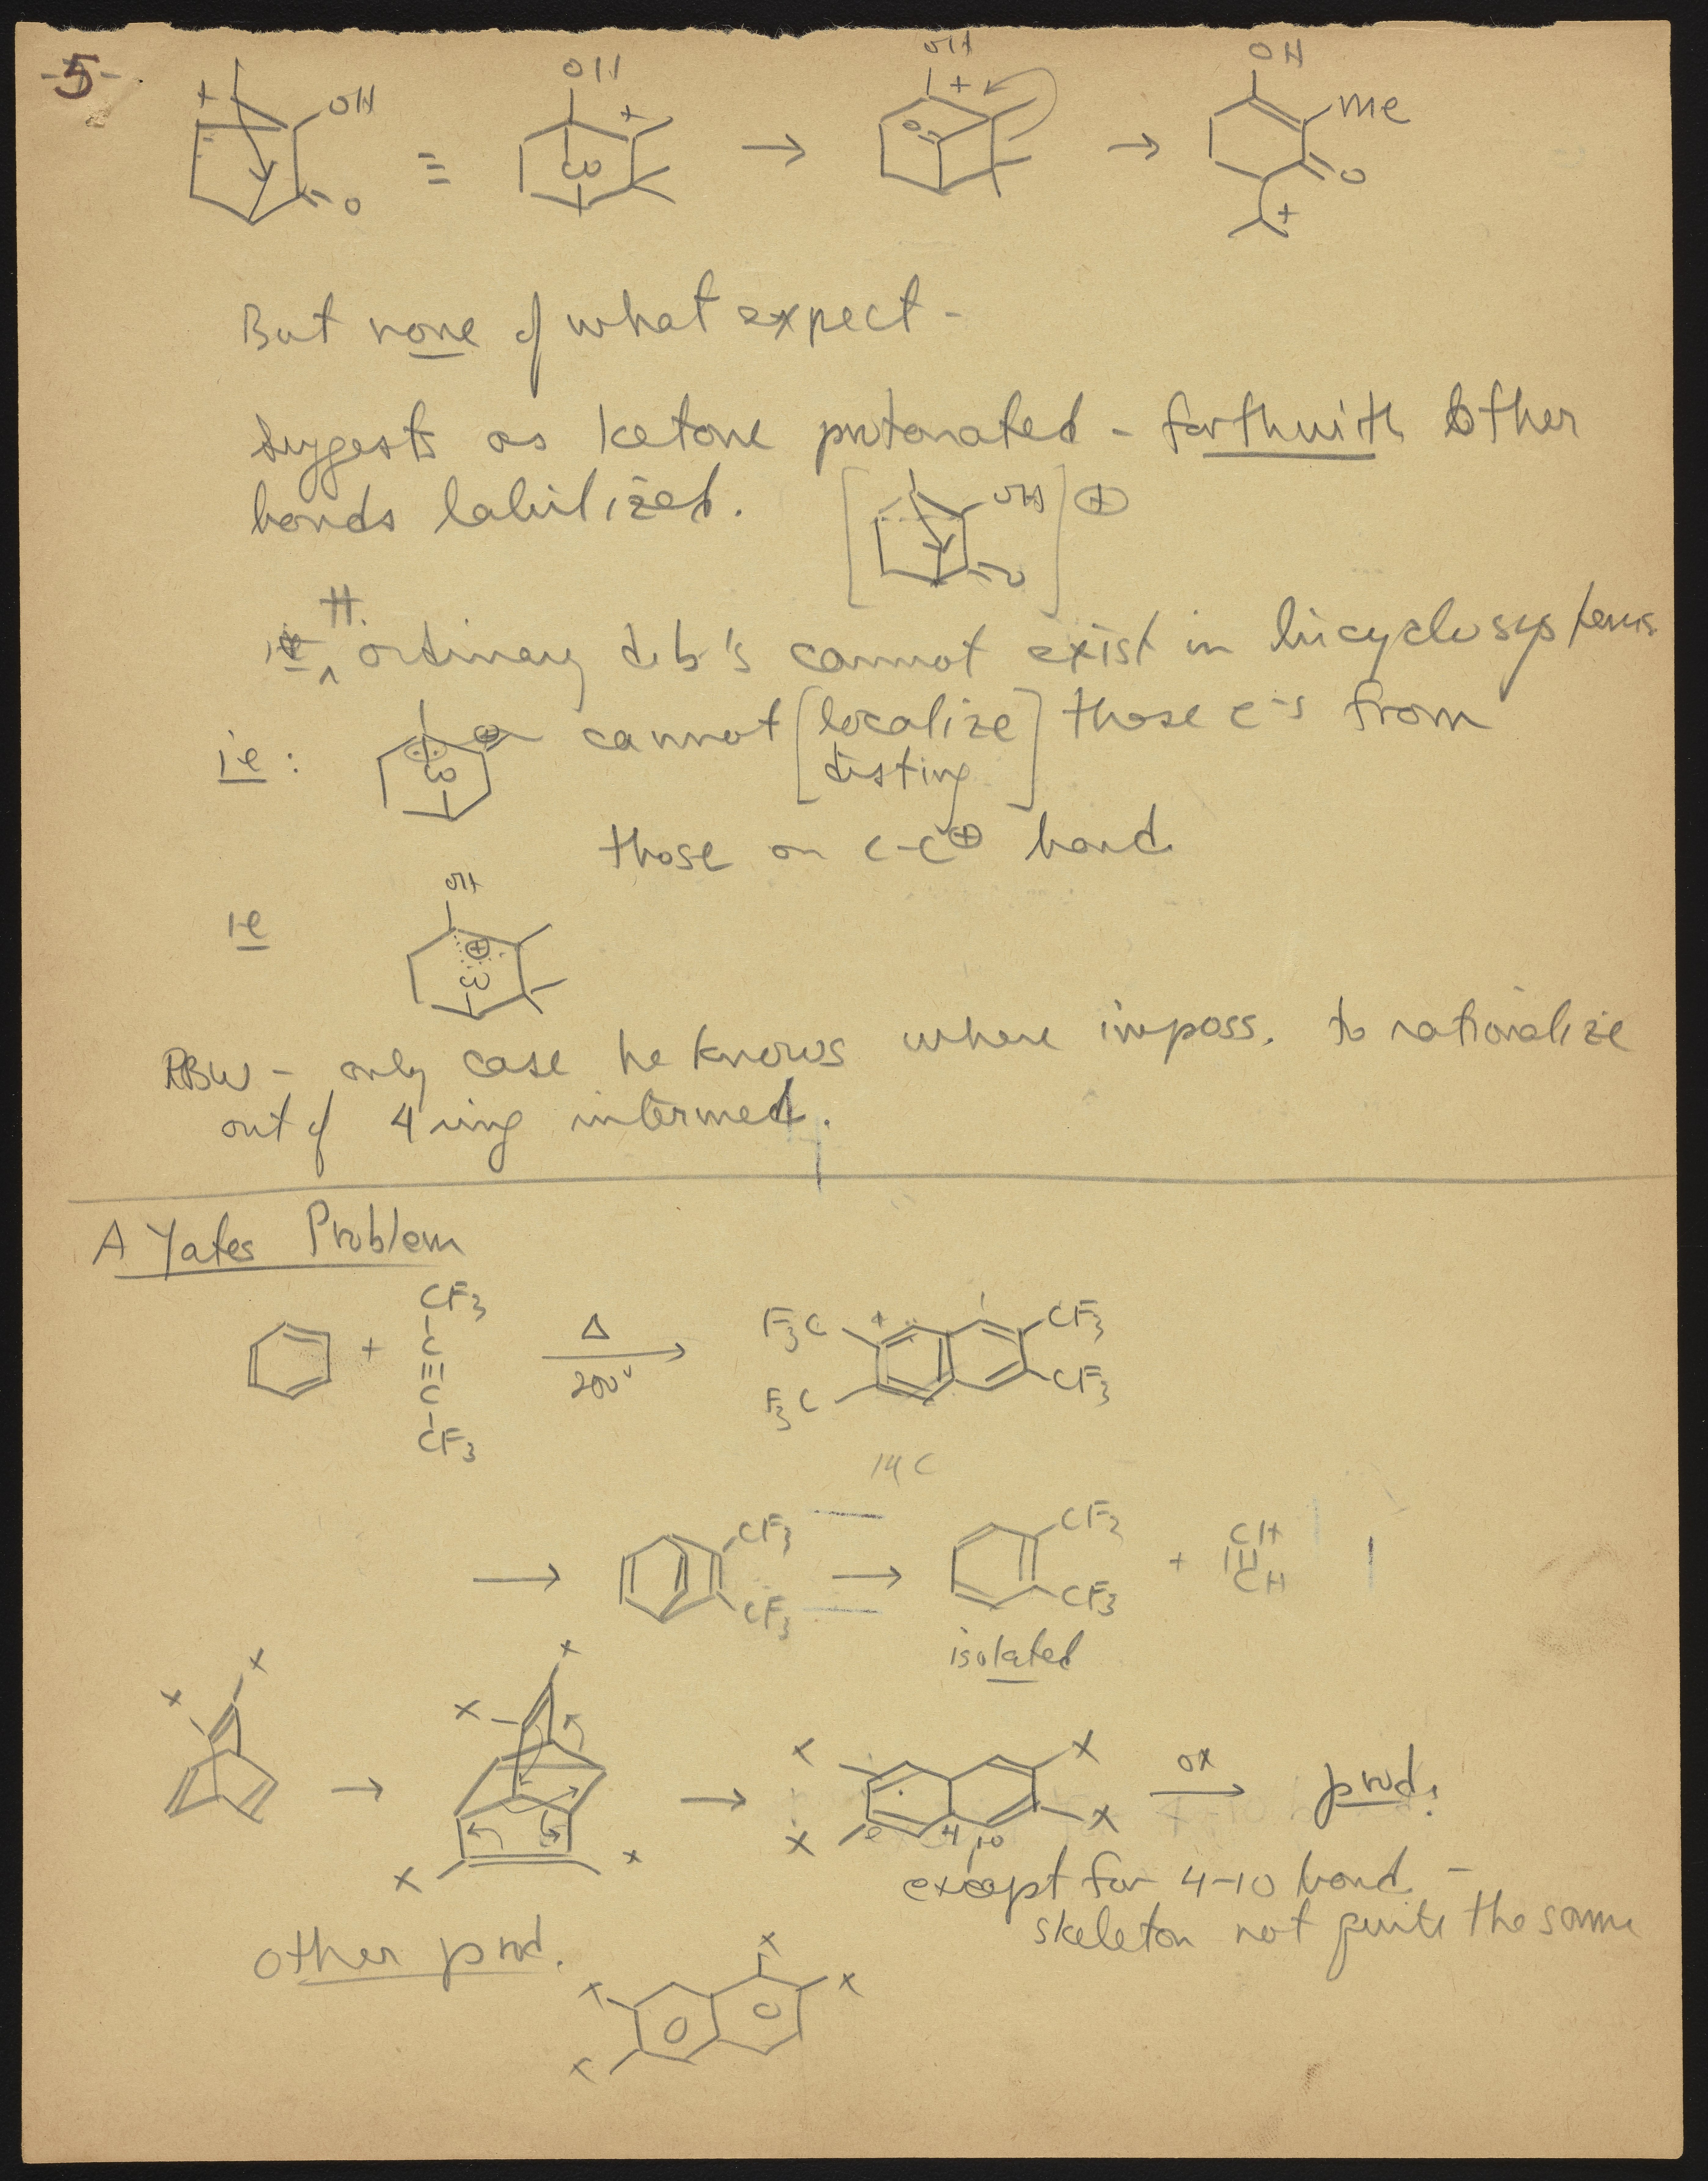 -5-
+ OH O
≡
OH + CO
→
OH + O
→
OH Me O +
But none of what expect -
suggests as ketone protonated - forthwith other
bonds labilized. [ OH O ] ⊕
H.
ordinary d.b's cannot exist in bicyclo systems
ie: ⊕ CO cannot [localize] those e-s from
disting
those on C-C⊕ bond
OH
ie ⊕ CO
RBW - only case he knows where imposs. to rationalize
out of 4 ring intermed.
A Yates Problem
+ CF3 - C ≡ C - CF3
Δ
200°
F3C CF3
F3C CF3
14 C
→ CF3 CF3 → CF3 CF3 + CH ||| CH
isolated
X X → X X X X → X X X X ox → prod.
4 10
except for 4-10 bond -
skeleton not quite the same
Other prod.
X X X X